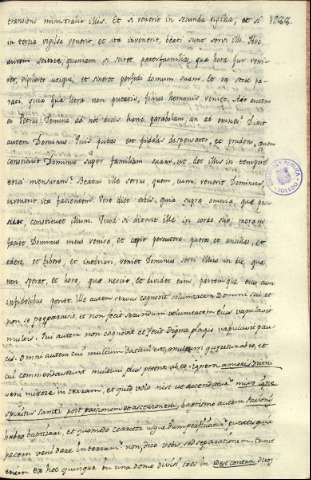 transiens ministrabit illis. Et si venerit in secunda vigilia, et si
in tertia vigilia venerit, et ita invenerit, beati sunt servi illi. Hoc
autem scitote, quoniam si sciret paterfamilias, qua hora fur veniret,
vigilaret utique, et non sineret perfodi domum suam. Et vos estote parati,
quia qua hora non putatis, filius hominis veniet. Ait autem
ei Petrus Domine ad nos dicis hanc parabolam, an ad omnes? Dixit
autem Dominus Quis putas est fidelis dispensator, et prudens, quem
constituit Dominus super familiam suam, ut det illis in tempore
tritici mensuram? Beatus ille servus quem cum venerit Dominus,
invenerit ita facientem. Vere dico vobis, quia supra omnia, quae possidet
constituet illum. Quod si dixerit ille in corde suo, moram
facit Dominus meus venire, et coeperit percutere pueros et ancillas, et
edere et bibere, et inebriari, veniet Dominus servi illius in die, qua
non sperat, et hora, qua nescit, et dividet eum, partemque eius cum
infidelibus ponet. Ille autem servus cognovit voluntatem Domini sui et
non se praeparavit, et non fecit secundum voluntatem eius vapulabit
multis. Qui autem non cognovit et fecit digna plagis vapulabit paucis.
Omni autem cui multum datum est, multum quaeretur ab eo, et
cui commendaverunt multum plus petent ab eo. Ignem
veni mittere in terram, et quid volo nisi ut accendatur
baptismo autem
habeo baptizari, et quomodo coarctor usque dum perficiatur
pacem veni dare in terram? non, dico vobis, sed separationem
enim ex hoc quinque in una domo divisi